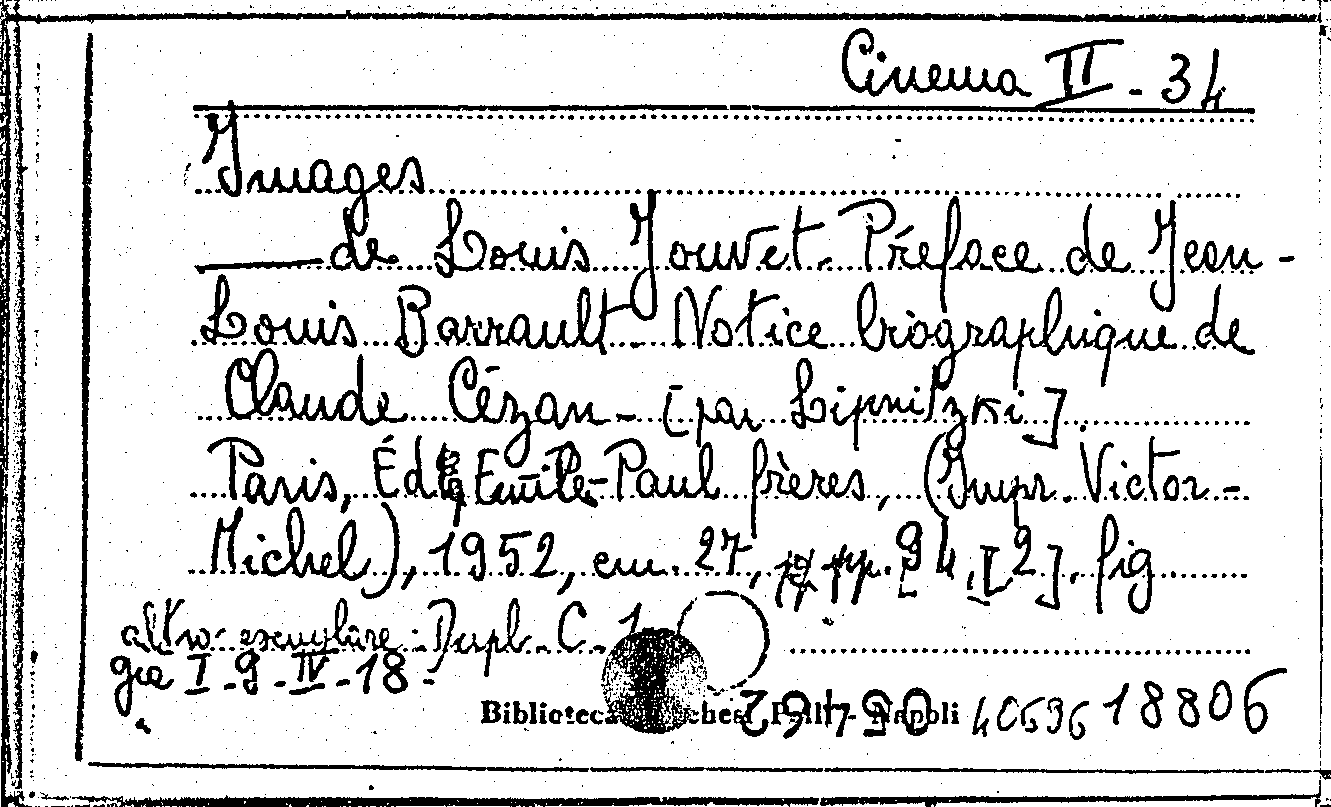 Cinema II - 34
Images
—— de Louis Jouvet. Préface de Jean-
Louis Barrault. Notice biographique de
Claude Cézan. - [par Lipnitzki].
Paris, Éd. Emile-Paul frères, (Impr. Victor-
Michel), 1952, cm. 27, pp. 94, [2]. fig
altro esemplare: Dupl. C. 1
già I-9-IV-18-
Biblioteca Lucchesi Palli - Napoli 40536 18806